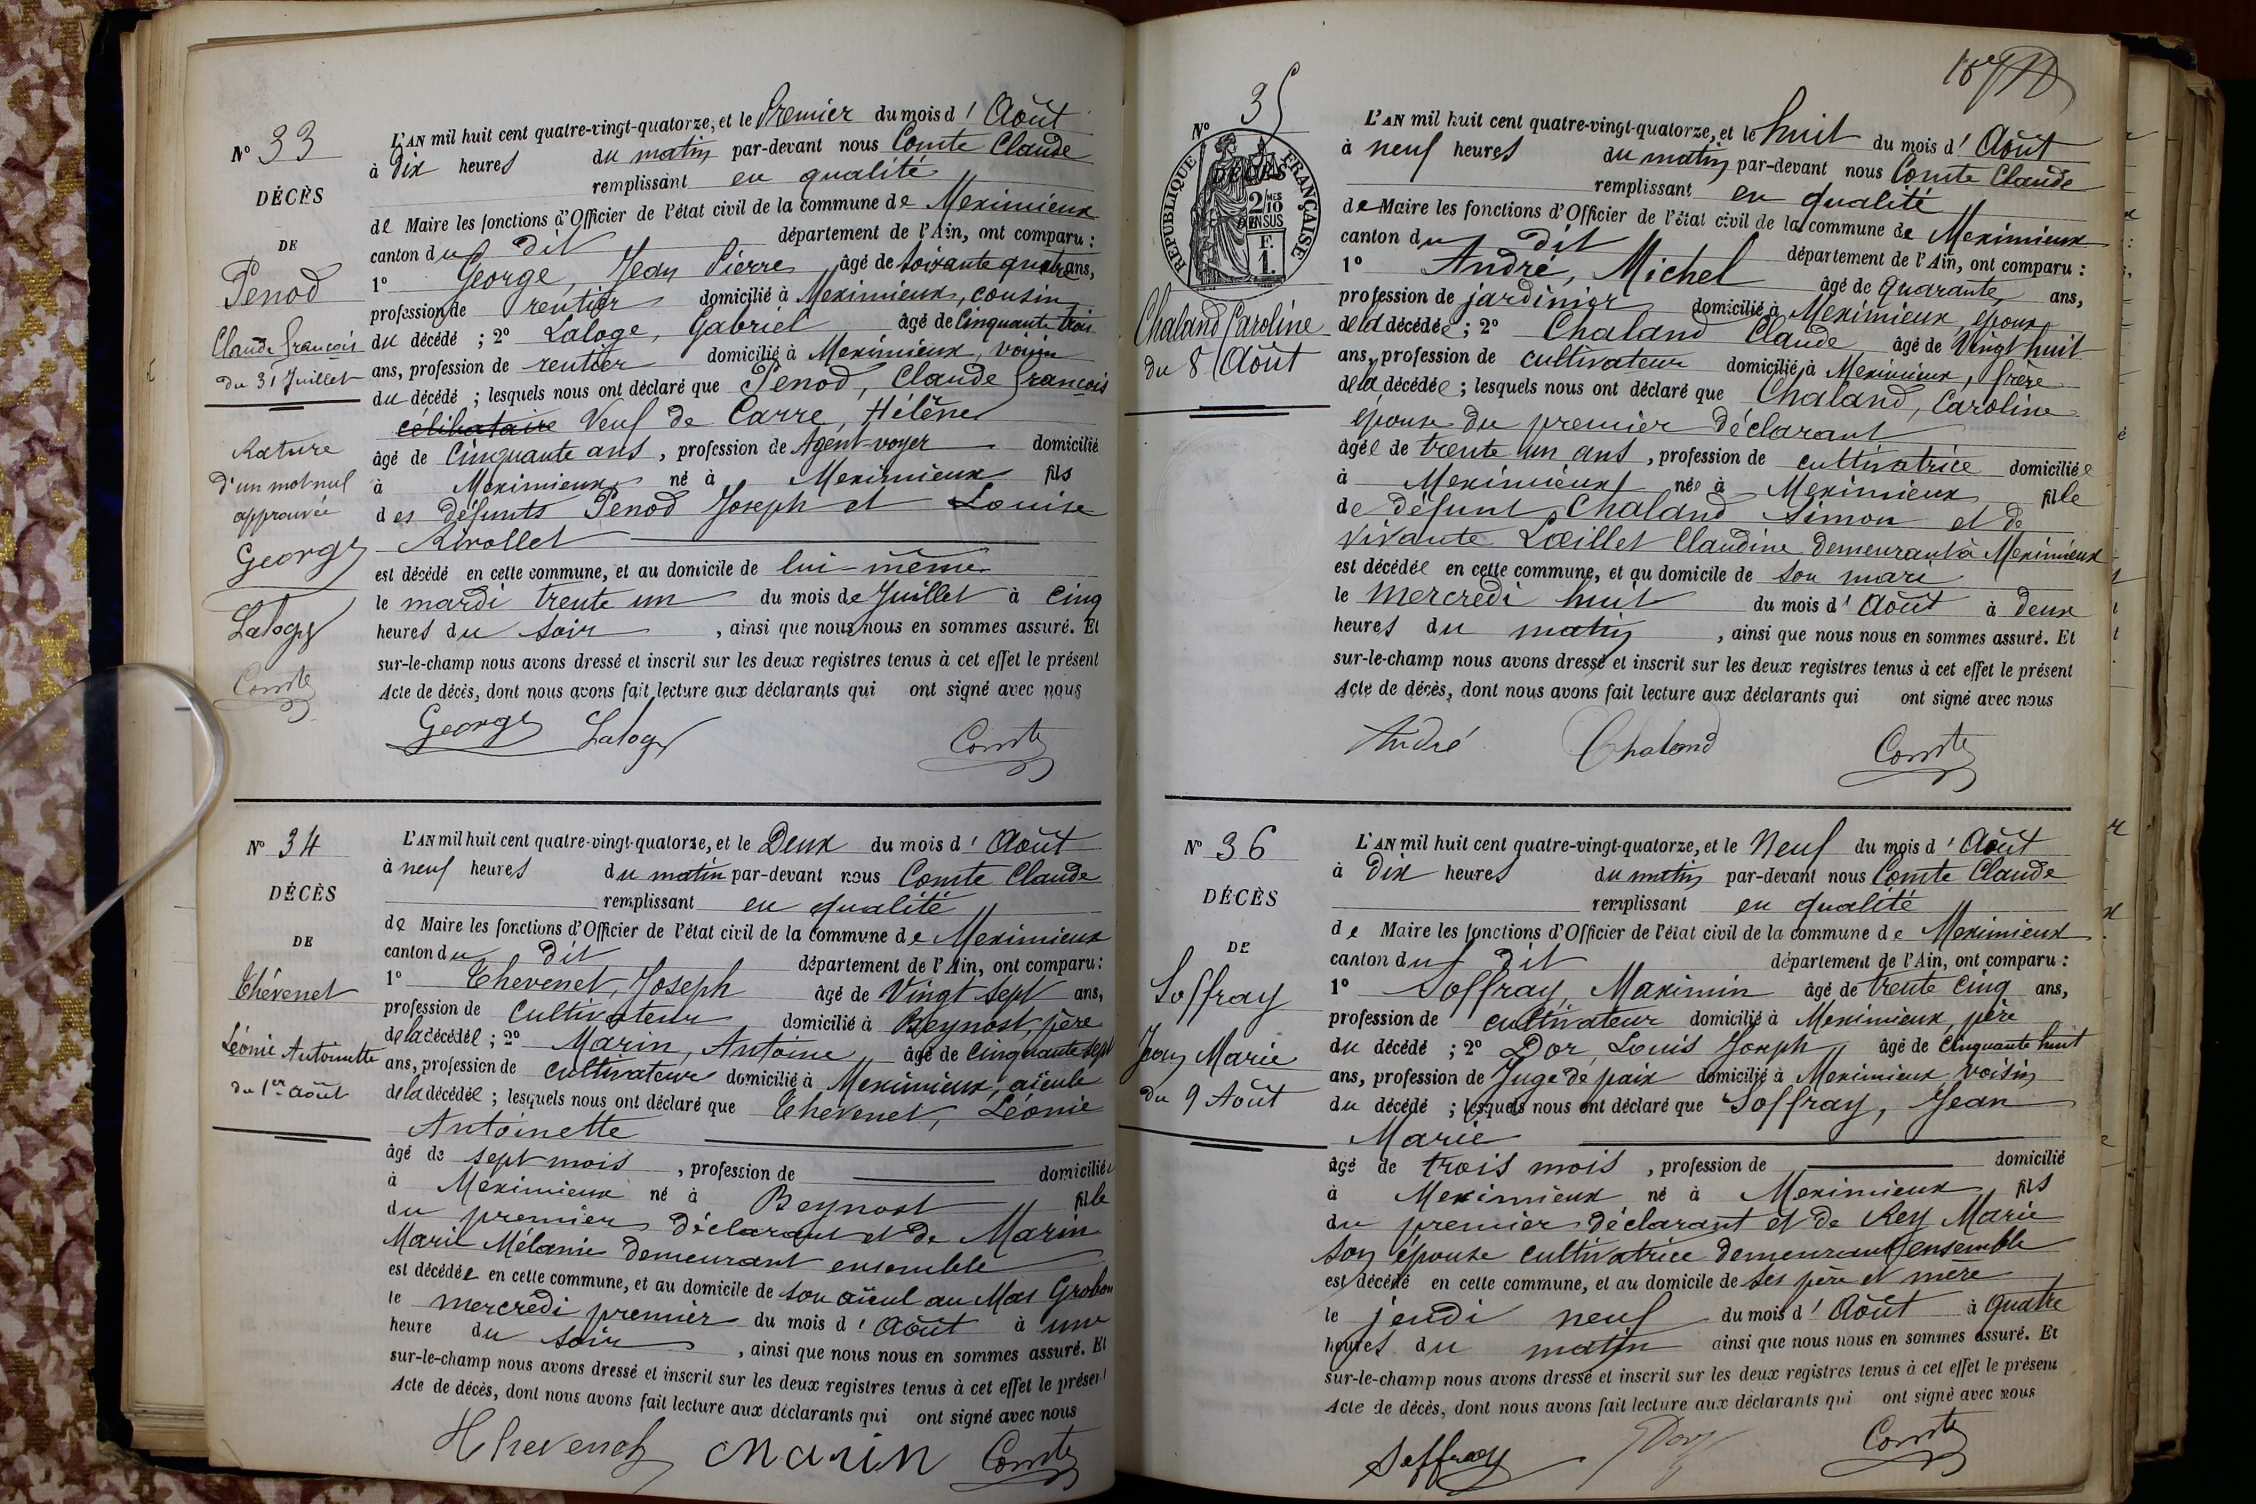 N° 33
DÉCÈS
DE
Penod
Claude François
du 31 Juillet
Rature
d'un mot nul
approuvée
George
Laloge
Comte
L'AN mil huit cent quatre-vingt-quatorze, et le Premier du mois d' Août
à Dix heures du matin par-devant nous Comte Claude
remplissant en qualité
de Maire les fonctions d'Officier de l'état civil de la commune de Meximieux
canton du dit département de l'Ain, ont comparu :
1° George, Jean Pierre âgé de soixante quatre ans,
profession de rentier domicilié à Meximieux, cousin
du décédé ; 2° Laloge, Gabriel âgé de Cinquante trois
ans, profession de rentier domicilié à Meximieux, voisin
du décédé ; lesquels nous ont déclaré que Penod, Claude François
célibataire Veuf de Carre, Hélène
âgé de Cinquante ans, profession de Agent-voyer domicilié
à Meximieux né à Meximieux fils
des défunts Penod Joseph et Louise
Rivollet
est décédé en cette commune, et au domicile de lui-même
le mardi trente un du mois de Juillet à Cinq
heures du soir, ainsi que nous nous en sommes assuré. Et
sur-le-champ nous avons dressé et inscrit sur les deux registres tenus à cet effet le présent
Acte de décès, dont nous avons fait lecture aux déclarants qui ont signé avec nous
George Laloge Comte
N° 34
DÉCÈS
DE
Thévenet
Léonie Antoinette
du 1er août
L'AN mil huit cent quatre-vingt-quatorze, et le Deux du mois d' Août
à neuf heures du matin par-devant nous Comte Claude
remplissant en qualité
de Maire les fonctions d'Officier de l'état civil de la commune de Meximieux
canton du dit département de l'Ain, ont comparu :
1° Thevenet, Joseph âgé de Vingt sept ans,
profession de Cultivateur domicilié à Beynost, père
de la décédée ; 2° Marin, Antoine âgé de Cinquante sept
ans, profession de cultivateur domicilié à Meximieux, aïeule
de la décédée ; lesquels nous ont déclaré que Thevenet, Léonie
Antoinette
âgé de sept mois, profession de domiciliée
à Meximieux né à Beynost fille
du premier déclarant et de Marin
Marie Mélanie demeurant ensemble
est décédée en cette commune, et au domicile de son aïeul au Mas Grobon
le mercredi premier du mois d' Août à une
heure du soir, ainsi que nous nous en sommes assuré. Et
sur-le-champ nous avons dressé et inscrit sur les deux registres tenus à cet effet le présent
Acte de décès, dont nous avons fait lecture aux déclarants qui ont signé avec nous
Thevenet Marin Comte
N° 35
RÉPUBLIQUE FRANÇAISE
DÉCÈS
2/10 MES
EN SUS
F.
1.
Chaland Caroline
du 8 Août
L'AN mil huit cent quatre-vingt-quatorze, et le huit du mois d' Août
à neuf heures du matin par-devant nous Comte Claude
remplissant en qualité
de Maire les fonctions d'Officier de l'état civil de la commune de Meximieux
canton du dit département de l'Ain, ont comparu :
1° André, Michel âgé de quarante ans,
profession de jardinier domicilié à Meximieux, époux
de la décédée ; 2° Chaland Claude âgé de Vingt huit
ans, profession de cultivateur domicilié à Meximieux, frère
de la décédée ; lesquels nous ont déclaré que Chaland, Caroline
épouse du premier déclarant
âgée de trente un ans, profession de cultivatrice domiciliée
à Meximieux née à Meximieux fille
de défunt Chaland Simon et de
vivante Lœillet Claudine demeurant à Meximieux
est décédée en cette commune, et au domicile de son mari
le Mercredi huit du mois d' Août à deux
heures du matin, ainsi que nous nous en sommes assuré. Et
sur-le-champ nous avons dressé et inscrit sur les deux registres tenus à cet effet le présent
Acte de décès, dont nous avons fait lecture aux déclarants qui ont signé avec nous
André Chaland Comte
N° 36
DÉCÈS
DE
Soffray
Jean Marie
du 9 Août
L'AN mil huit cent quatre-vingt-quatorze, et le Neuf du mois d' Août
à Dix heures du matin par-devant nous Comte Claude
remplissant en qualité
de Maire les fonctions d'Officier de l'état civil de la commune de Meximieux
canton du dit département de l'Ain, ont comparu :
1° Soffray, Maximin âgé de trente Cinq ans,
profession de cultivateur domicilié à Meximieux, père
du décédé ; 2° Dor, Louis Joseph âgé de Cinquante huit
ans, profession de Juge de paix domicilié à Meximieux, voisin
du décédé ; lesquels nous ont déclaré que Soffray, Jean
Marie
âgé de trois mois, profession de domicilié
à Meximieux né à Meximieux fils
du premier déclarant et de Rey Marie
son épouse cultivatrice demeurant ensemble
est décédé en cette commune, et au domicile de ses père et mère
le jeudi neuf du mois d' Août à Quatre
heures du matin ainsi que nous nous en sommes assuré. Et
sur-le-champ nous avons dressé et inscrit sur les deux registres tenus à cet effet le présent
Acte de décès, dont nous avons fait lecture aux déclarants qui ont signé avec nous
Soffray Dor Comte